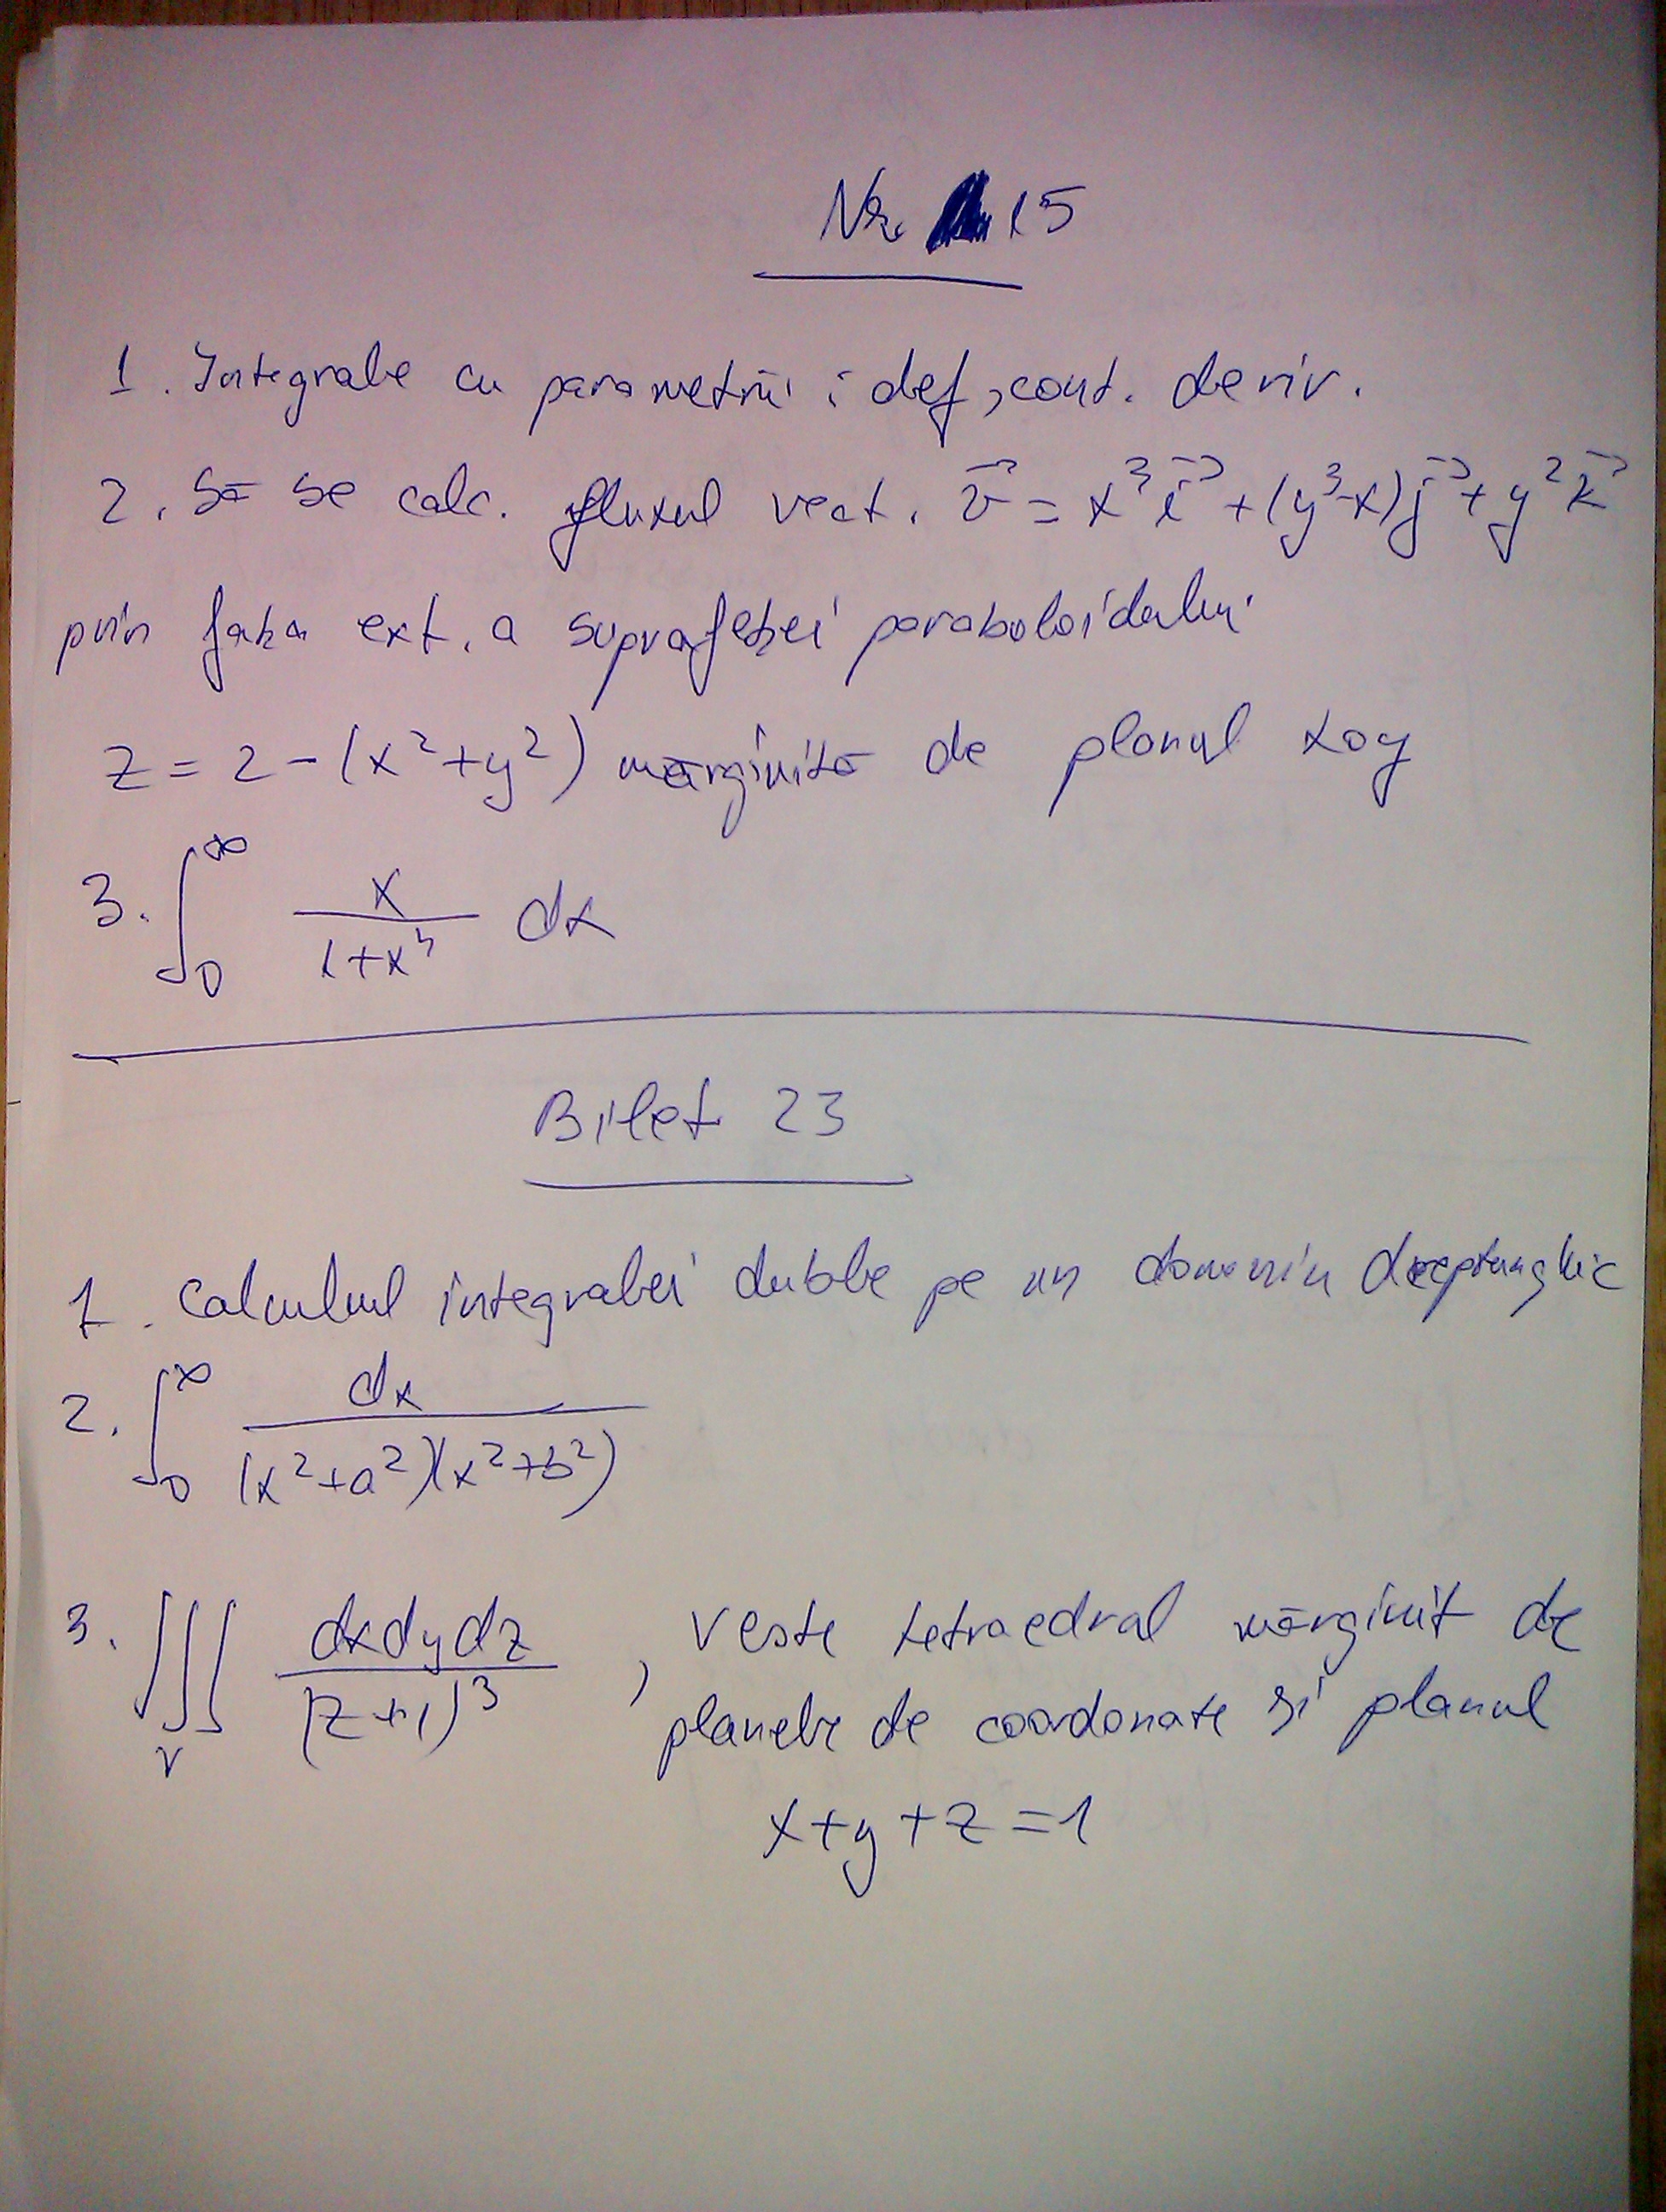 Nr. 15
1. Integrale cu parametrii : def, cont. deriv.
2. Să se calc. fluxul vect. v⃗ = x³i⃗ + (y³-x)j⃗ + y²k⃗
prin faţa ext. a suprafeţei paraboloidului
z = 2 - (x² + y²) mărginită de planul xoy
3. ∫₀^∞ x/(1+x³) dx
Bilet 23
1. Calculul integralei duble pe un domeniu dreptunghic
2. ∫₀^∞ dx/((x²+a²)(x²+b²))
3. ∭_V dxdydz/(z+1)³ , V este tetraedral mărginit de
planele de coordonate şi planul
x+y+z=1